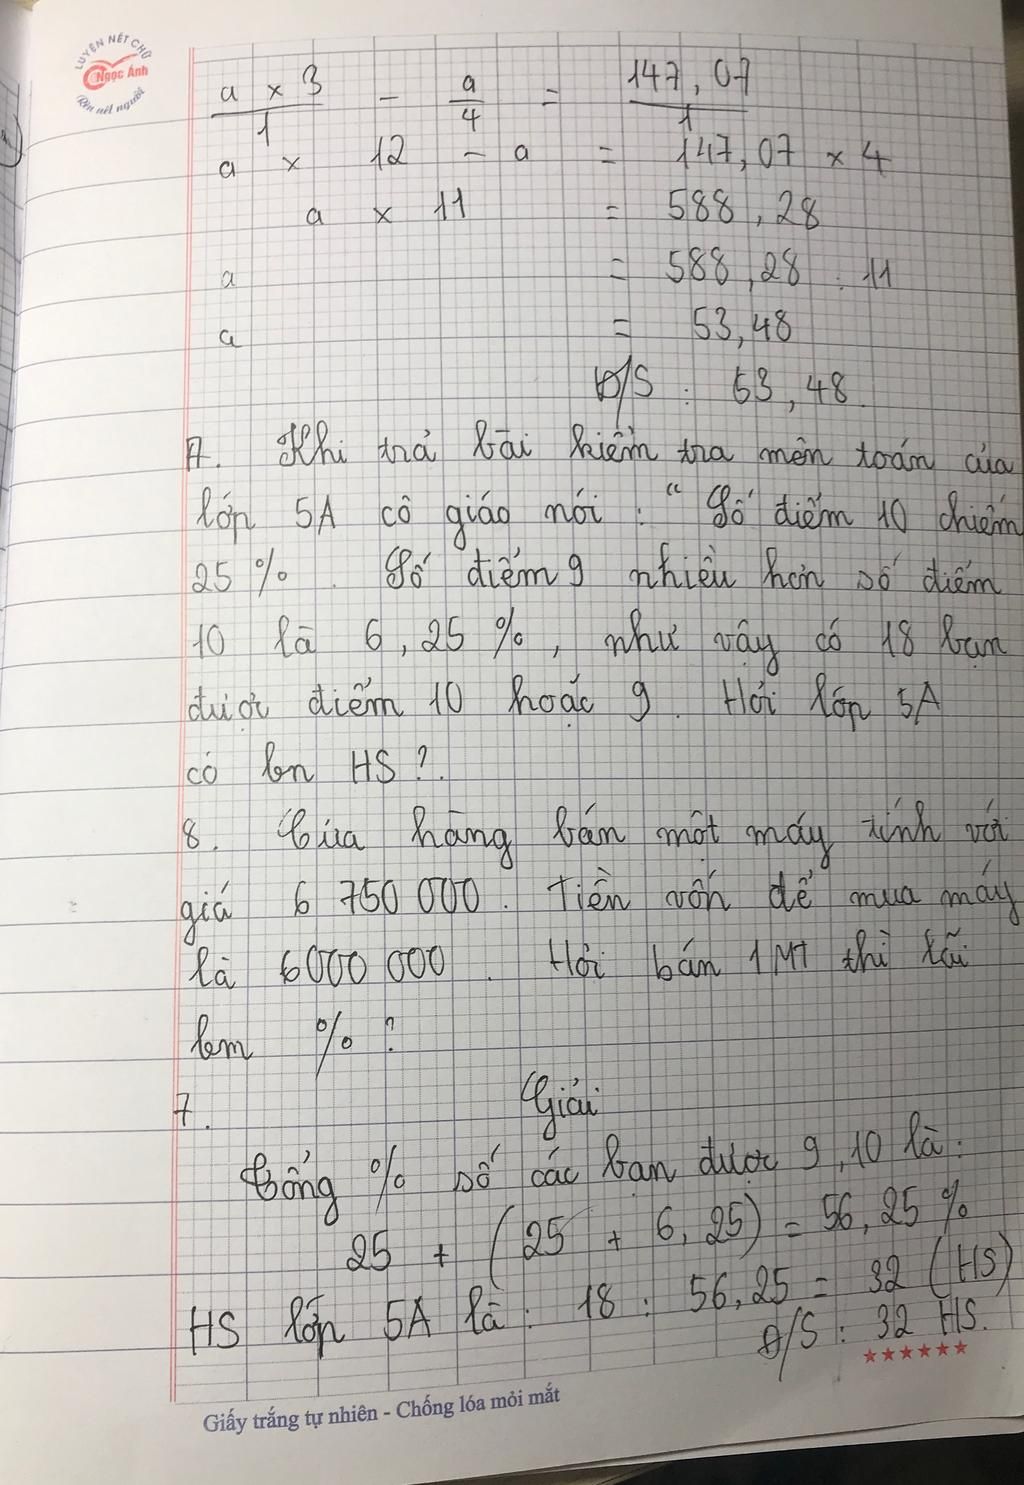 LUYỆN NÉT CHỮ
Ngọc Ánh
Rèn nết người
a × 3 / 1 - a / 4 = 147,07 / 1
a × 12 - a = 147,07 × 4
a × 11 = 588,28
a = 588,28 : 11
a = 53,48
Đ/S : 53,48
7. Khi trả bài kiểm tra môn toán của
lớp 5A cô giáo nói : "Số điểm 10 chiếm
25 % . Số điểm 9 nhiều hơn số điểm
10 là 6,25 %, như vậy có 18 bạn
được điểm 10 hoặc 9. Hỏi lớp 5A
có bn HS ?
8. Cửa hàng bán một máy tính với
giá 6 750 000. Tiền vốn để mua máy
là 6 000 000 . Hỏi bán 1 MT thì lãi
bn % ?
7. Giải
Tổng % số các bạn được 9, 10 là :
25 + (25 + 6,25) = 56,25 %
HS lớp 5A là : 18 : 56,25 = 32 (HS)
Đ/S : 32 HS.
Giấy trắng tự nhiên - Chống lóa mỏi mắt